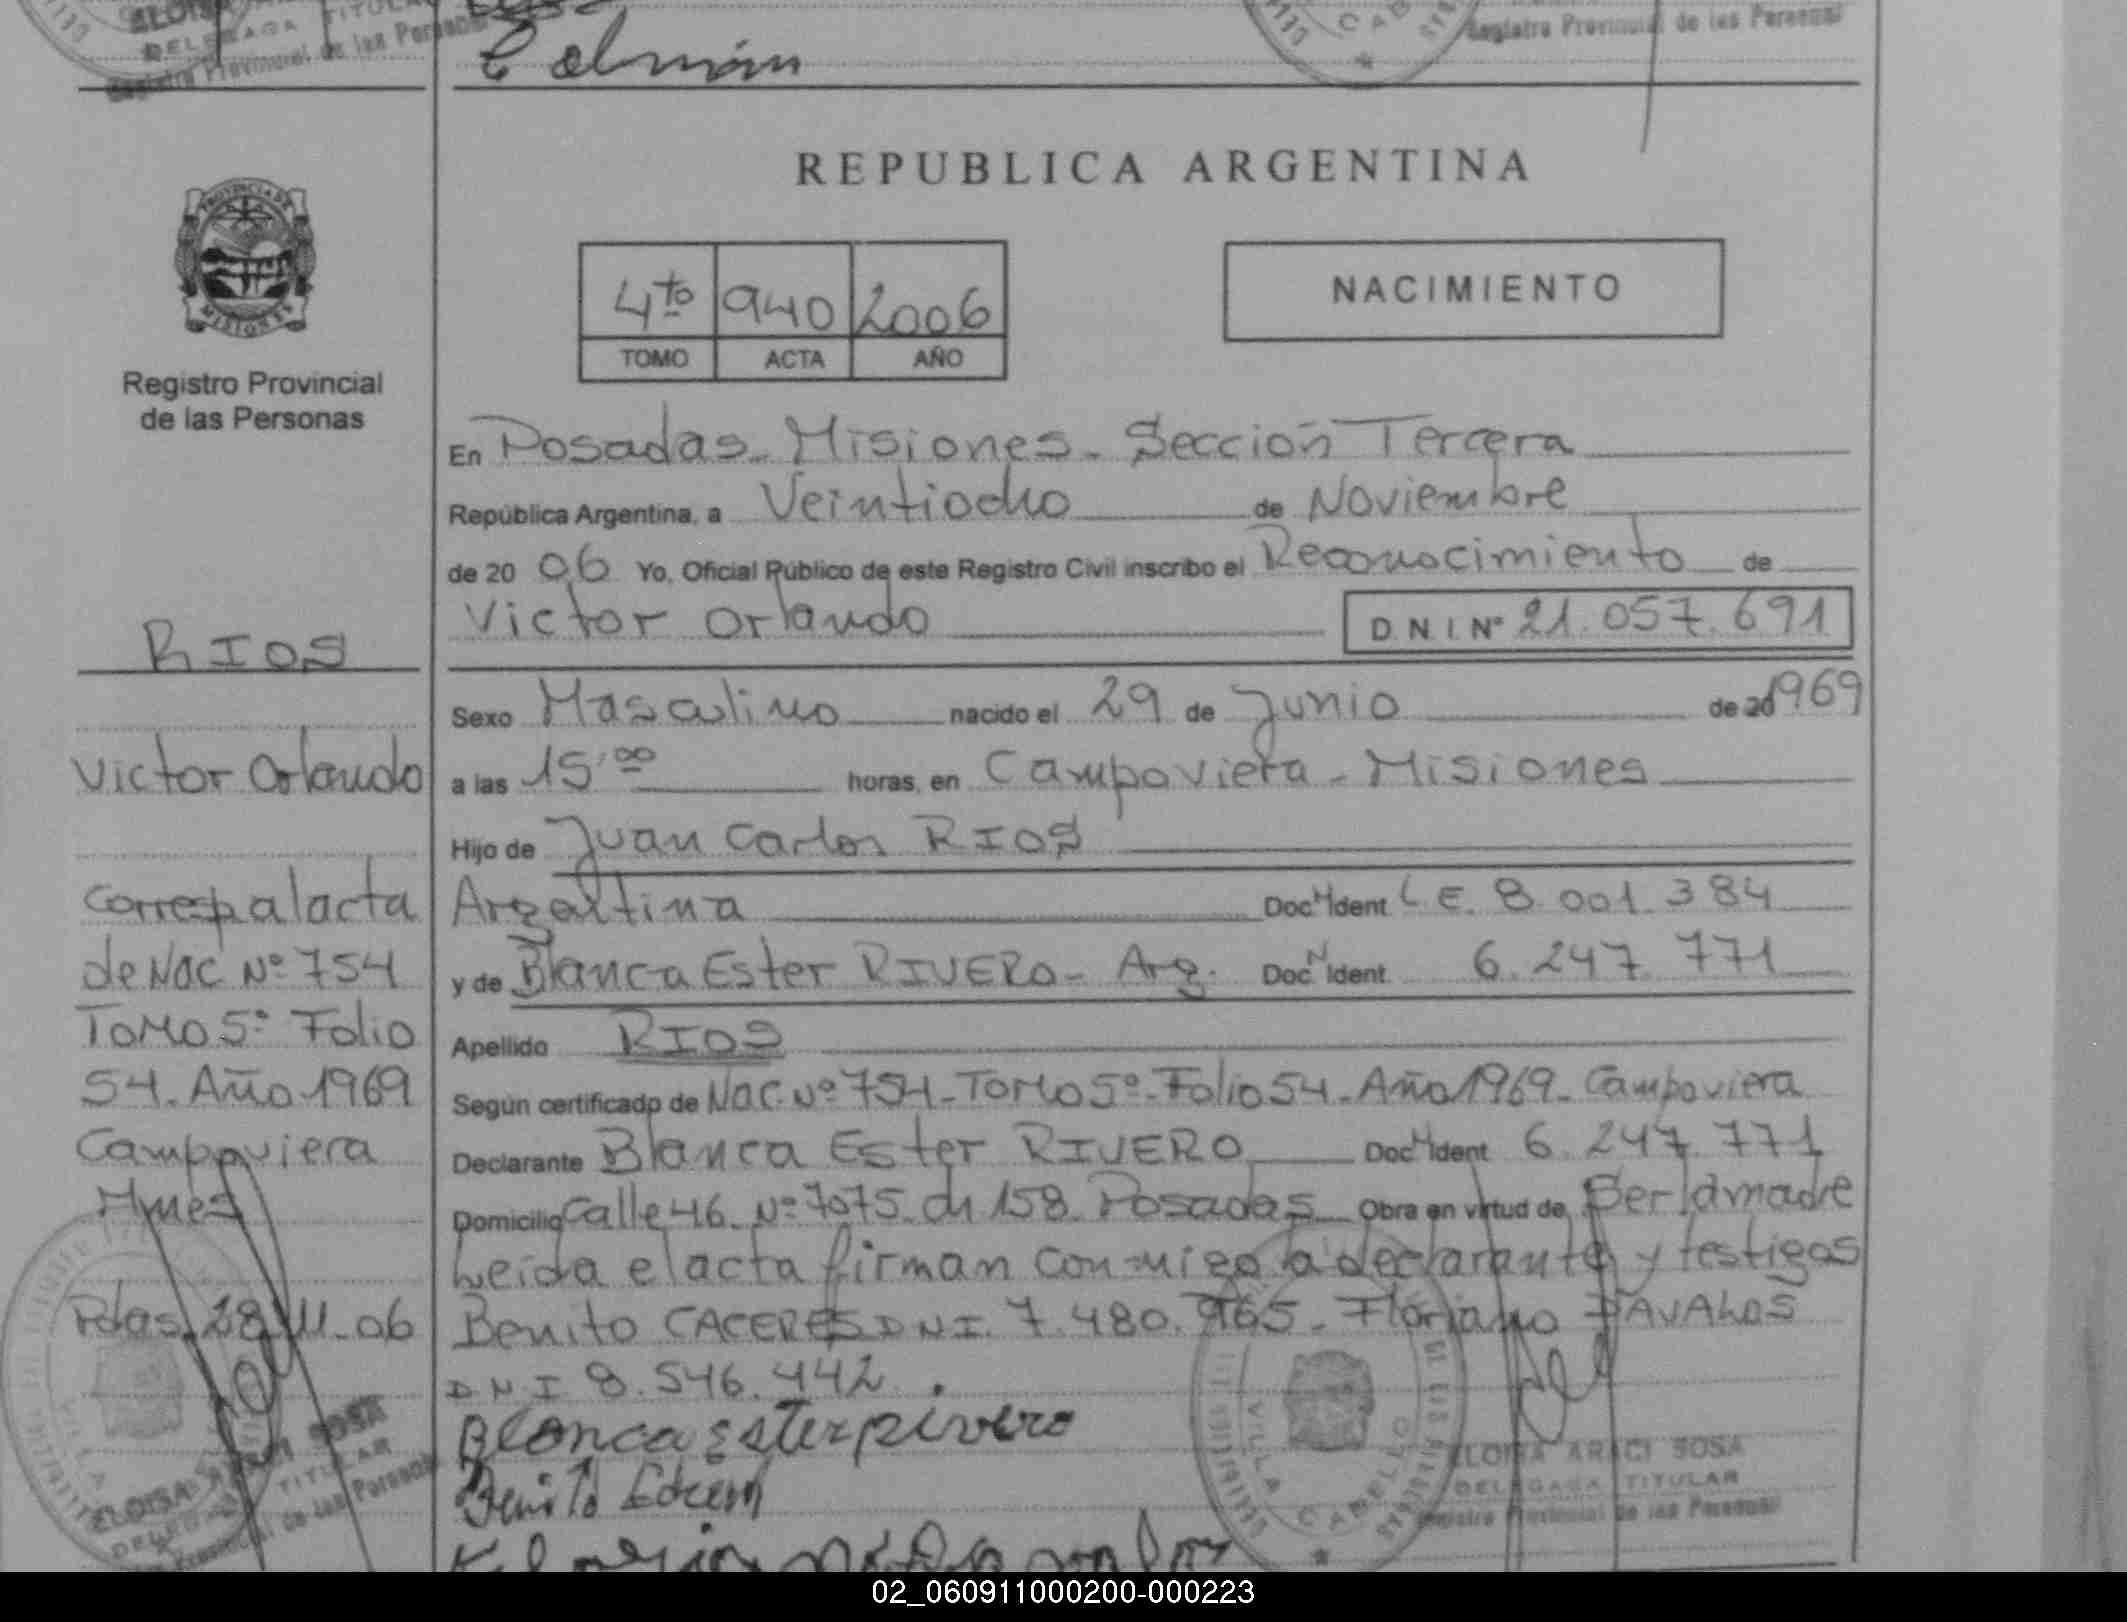 ELOISA
DELEGADA TITULAR
Registro Provincial de las Personas
Registro Provincial de las Personas
REPUBLICA ARGENTINA
PROVINCIA DE
MISIONES
4to 940 2006
TOMO ACTA AÑO
NACIMIENTO
Registro Provincial
de las Personas
En Posadas - Misiones - Sección Tercera
República Argentina, a Veintiocho de Noviembre
de 20 06 Yo, Oficial Público de este Registro Civil inscribo el Reconocimiento de
Victor Orlando D.N.I. Nº 21.057.691
RIOS
Sexo Masculino nacido el 29 de Junio de 20 1969
Victor Orlando
a las 15,00 horas, en Campoviera - Misiones
Hijo de Juan Carlos RIOS
Corresp a l acta
de Nac Nº 754
Tomo 5º Folio
54. Año 1969
Campoviera
Mnes
Pdas. 28-11-06
Argentina Doc Ident L.E. 8.001.384
y de Blanca Ester RIVERO - Arg. Doc Ident. 6.247.771
Apellido RIOS
Según certificado de Nac. Nº 754 - Tomo 5º - Folio 54 - Año 1969 - Campoviera
Declarante Blanca Ester RIVERO Doc Ident 6.247.771
Domicilio Calle 46 Nº 7075 ch 158 Posadas Obra en virtud de Ser la madre
Leída el acta firman conmigo la declarante y testigos
Benito CACERES DNI. 7.480.965 - Floriano DAVALOS
DNI 8.546.442.
Blanca Ester rivero
Benito
ELOISA ARACI SOSA
DELEGADA TITULAR
Registro Provincial de las Personas
VILLA CABELLO
ELOISA ARACI SOSA
DELEGADA TITULAR
Registro Provincial de las Personas
02_060911000200-000223